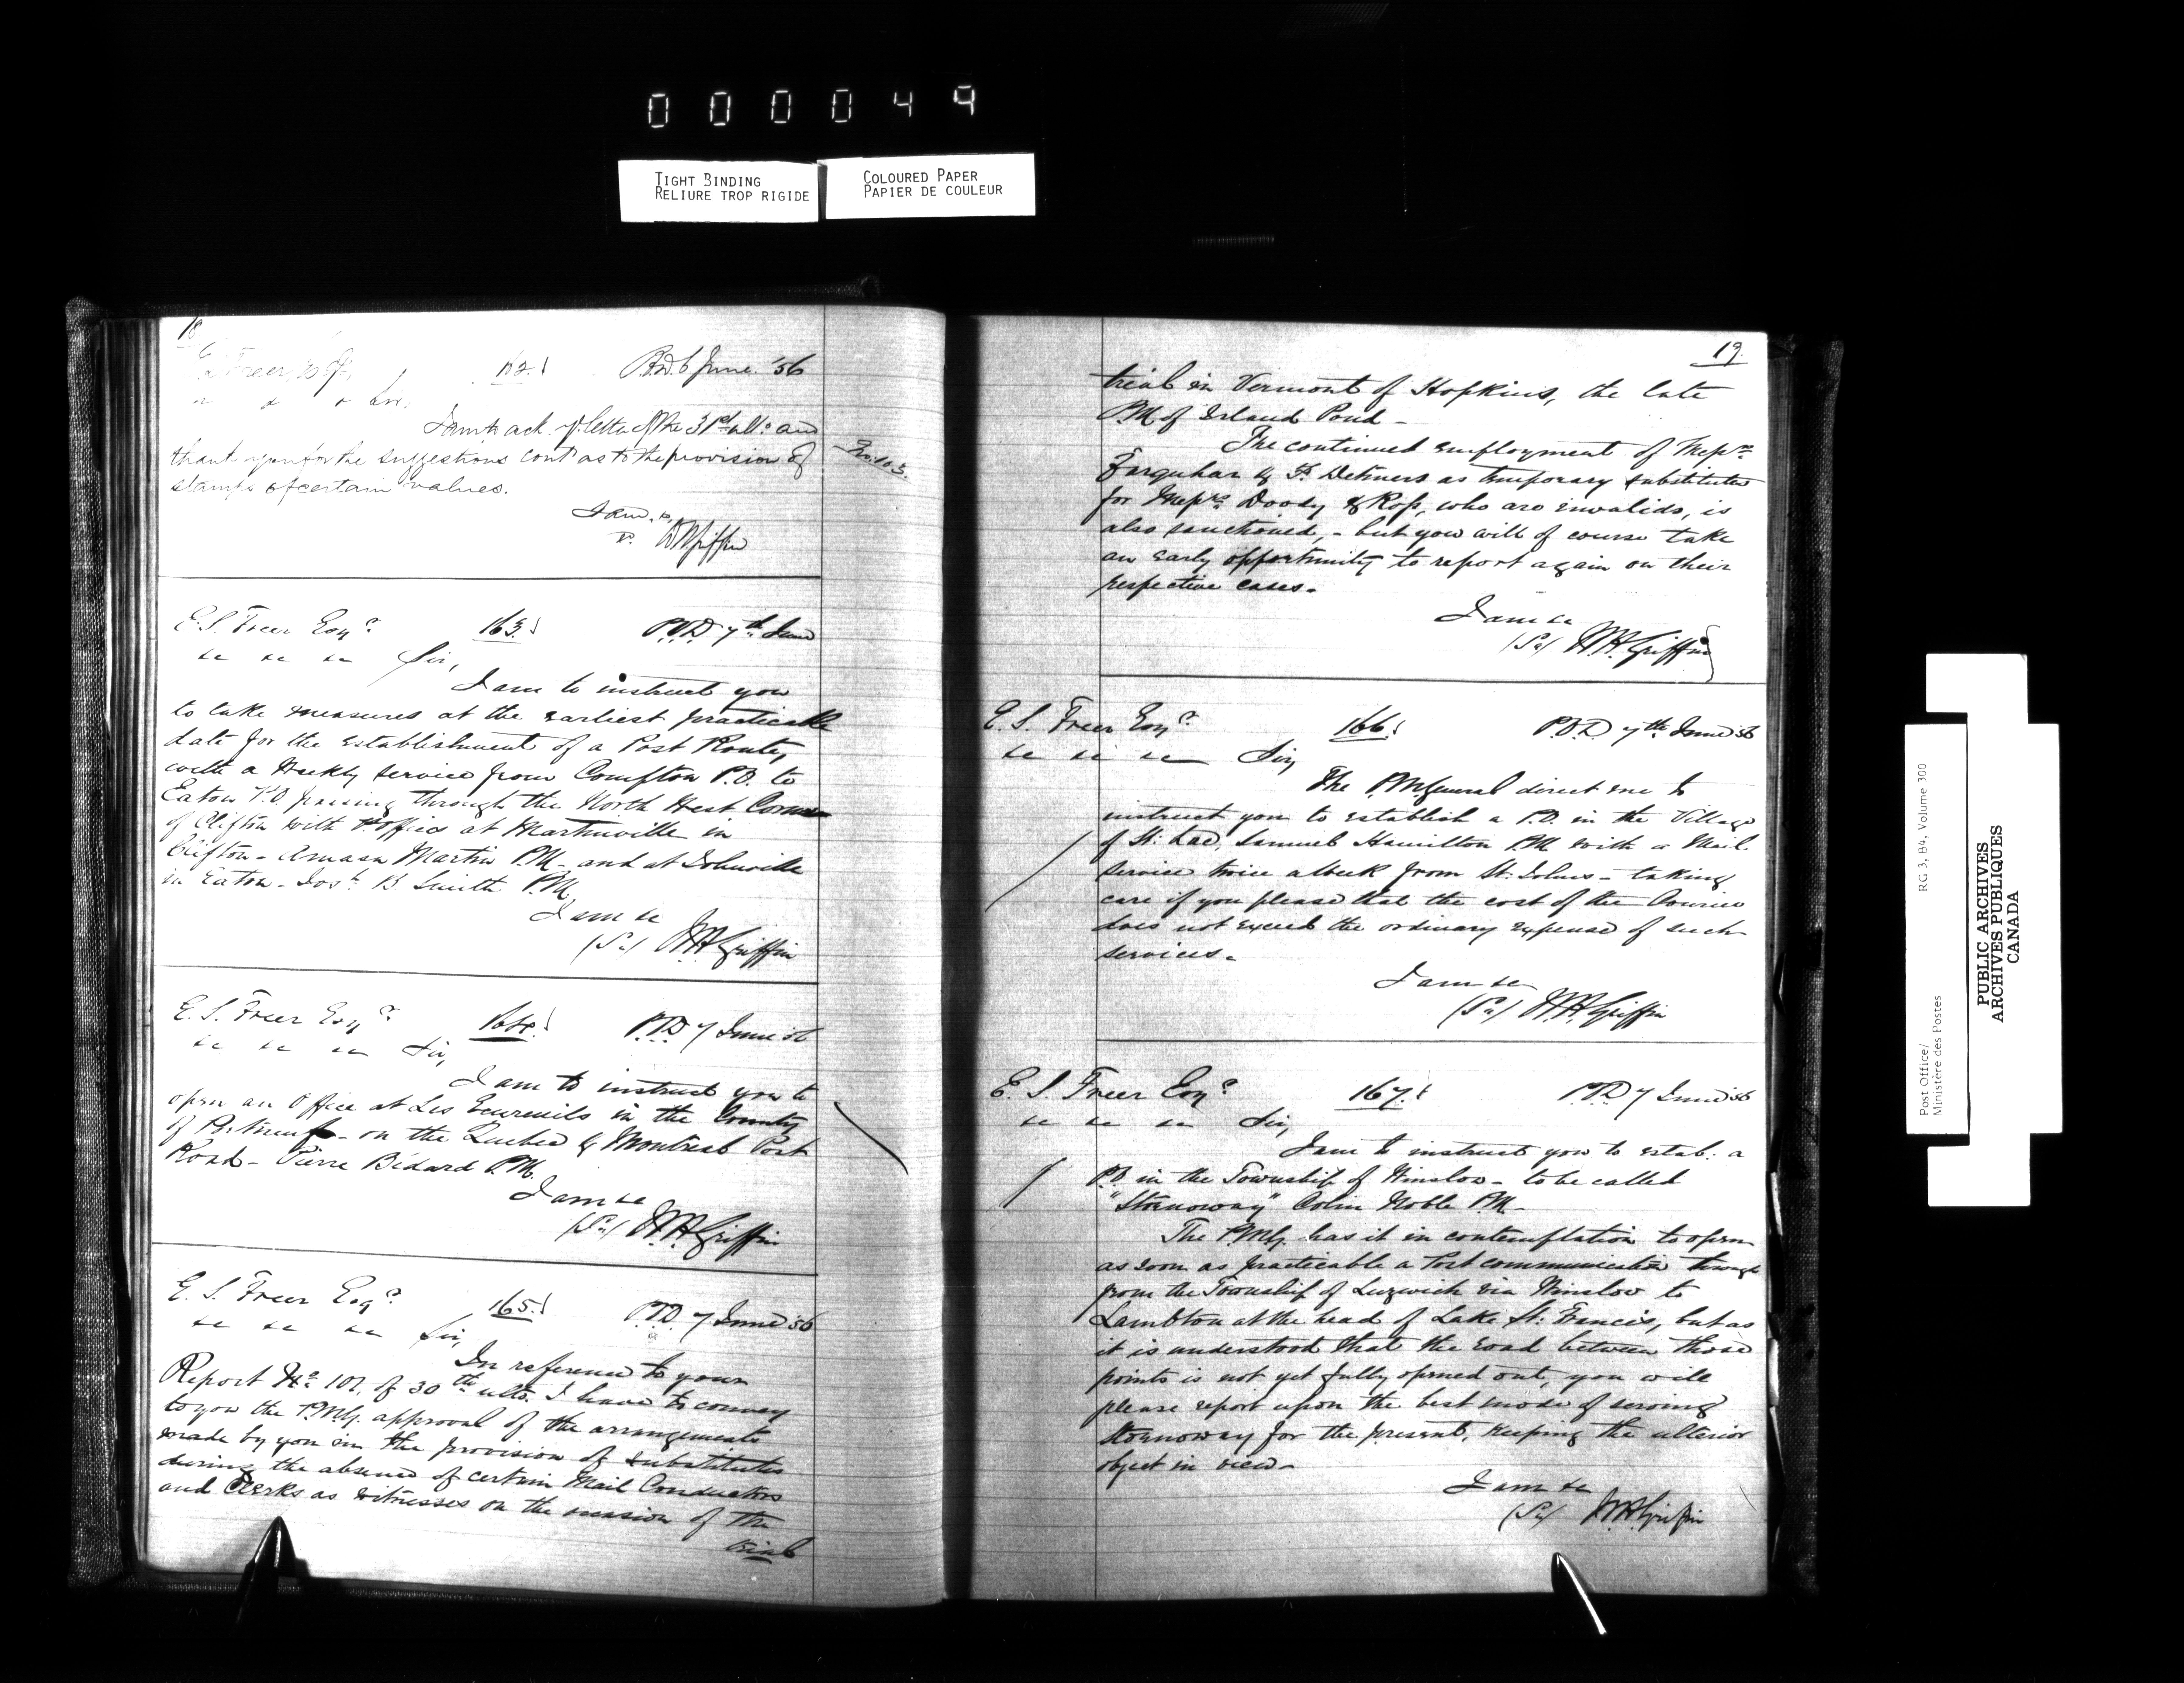 000049
TIGHT BINDING
RELIURE TROP RIGIDE
COLOURED PAPER
PAPIER DE COULEUR
18
162. P.O.D. 6 June '56
Sir,
I am to ack. yr letter of the 31st ulto. and
thank you for the suggestions cont. as to the provision of
stamps of certain values.
I am, &
WHGriffin
No. 103.
E. S. Freer Esqr. 163. P.O.D. 7th June
&c &c &c Sir,
I am to instruct you
to take measures at the earliest practicable
date for the establishment of a Post Route,
with a Weekly service from Compton P.O. to
Eaton P.O. passing through the North West Corner
of Clifton with office at Martinville in
Clifton - Amasa Martin P.M. - and at Johnville
in Eaton - Josh. B Smith P.M.
I am &c
(Sd) W.H. Griffin
E. S. Freer Esqr. 164. P.O.D. 7 June 56
&c &c &c Sir,
I am to instruct you to
open an Office at Les Ecureuils in the County
of Portneuf - on the Quebec & Montreal Post
Road - Pierre Bédard P.M.
I am &c
(Sd) W.H. Griffin
E. S. Freer Esqr. 165. P.O.D. 7 June 56
&c &c &c Sir,
In reference to your
Report No. 107. of 30th ulto. I have to convey
to you the P.M.G. approval of the arrangements
made by you in the provision of substitutes
during the absence of certain Mail Conductors
and Clerks as witnesses on the occasion of the
trial
19.
trial in Vermont of Hopkins, the late
P.M. of Island Pond -
The continued employment of Messrs.
Farquhar & as temporary substitutes
for Messrs. Doody & Ross, who are invalids, is
also sanctioned, - but you will of course take
an early opportunity to report again on their
respective cases.
I am &c
(Sd) W.H. Griffin
E. S. Freer Esqr. 166. P.O.D 7th June 56
&c &c &c Sir,
The P.M. General direct me to
instruct you to establish a P.O. in the Village
of St: Samuel Hamilton P.M. with a Mail
service twice a Week from St. Johns - taking
care if you please that the cost of the Courier
does not exceed the ordinary expense of such
services.
I am &c
(Sd) W.H. Griffin
E. S. Freer Esqr. 167. P.O.D 7 June 56
&c &c &c Sir,
I am to instruct you to estab: a
P.O. in the Township of Winslow - to be called
"Stornoway" Colin Noble P.M. -
The P.M.G. has it in contemplation to open
as soon as practicable a Post communication through
from the Township of Lingwick via Winslow to
Lambton at the head of Lake St: Francis, but as
it is understood that the road between those
points is not yet fully opened out, you will
please report upon the best mode of serving
Stornoway for the present, keeping the ulterior
object in view.
I am &c
(Sd) W.H. Griffin
Post Office/
Ministère des Postes
RG 3, B4, Volume 300
PUBLIC ARCHIVES
ARCHIVES PUBLIQUES
CANADA